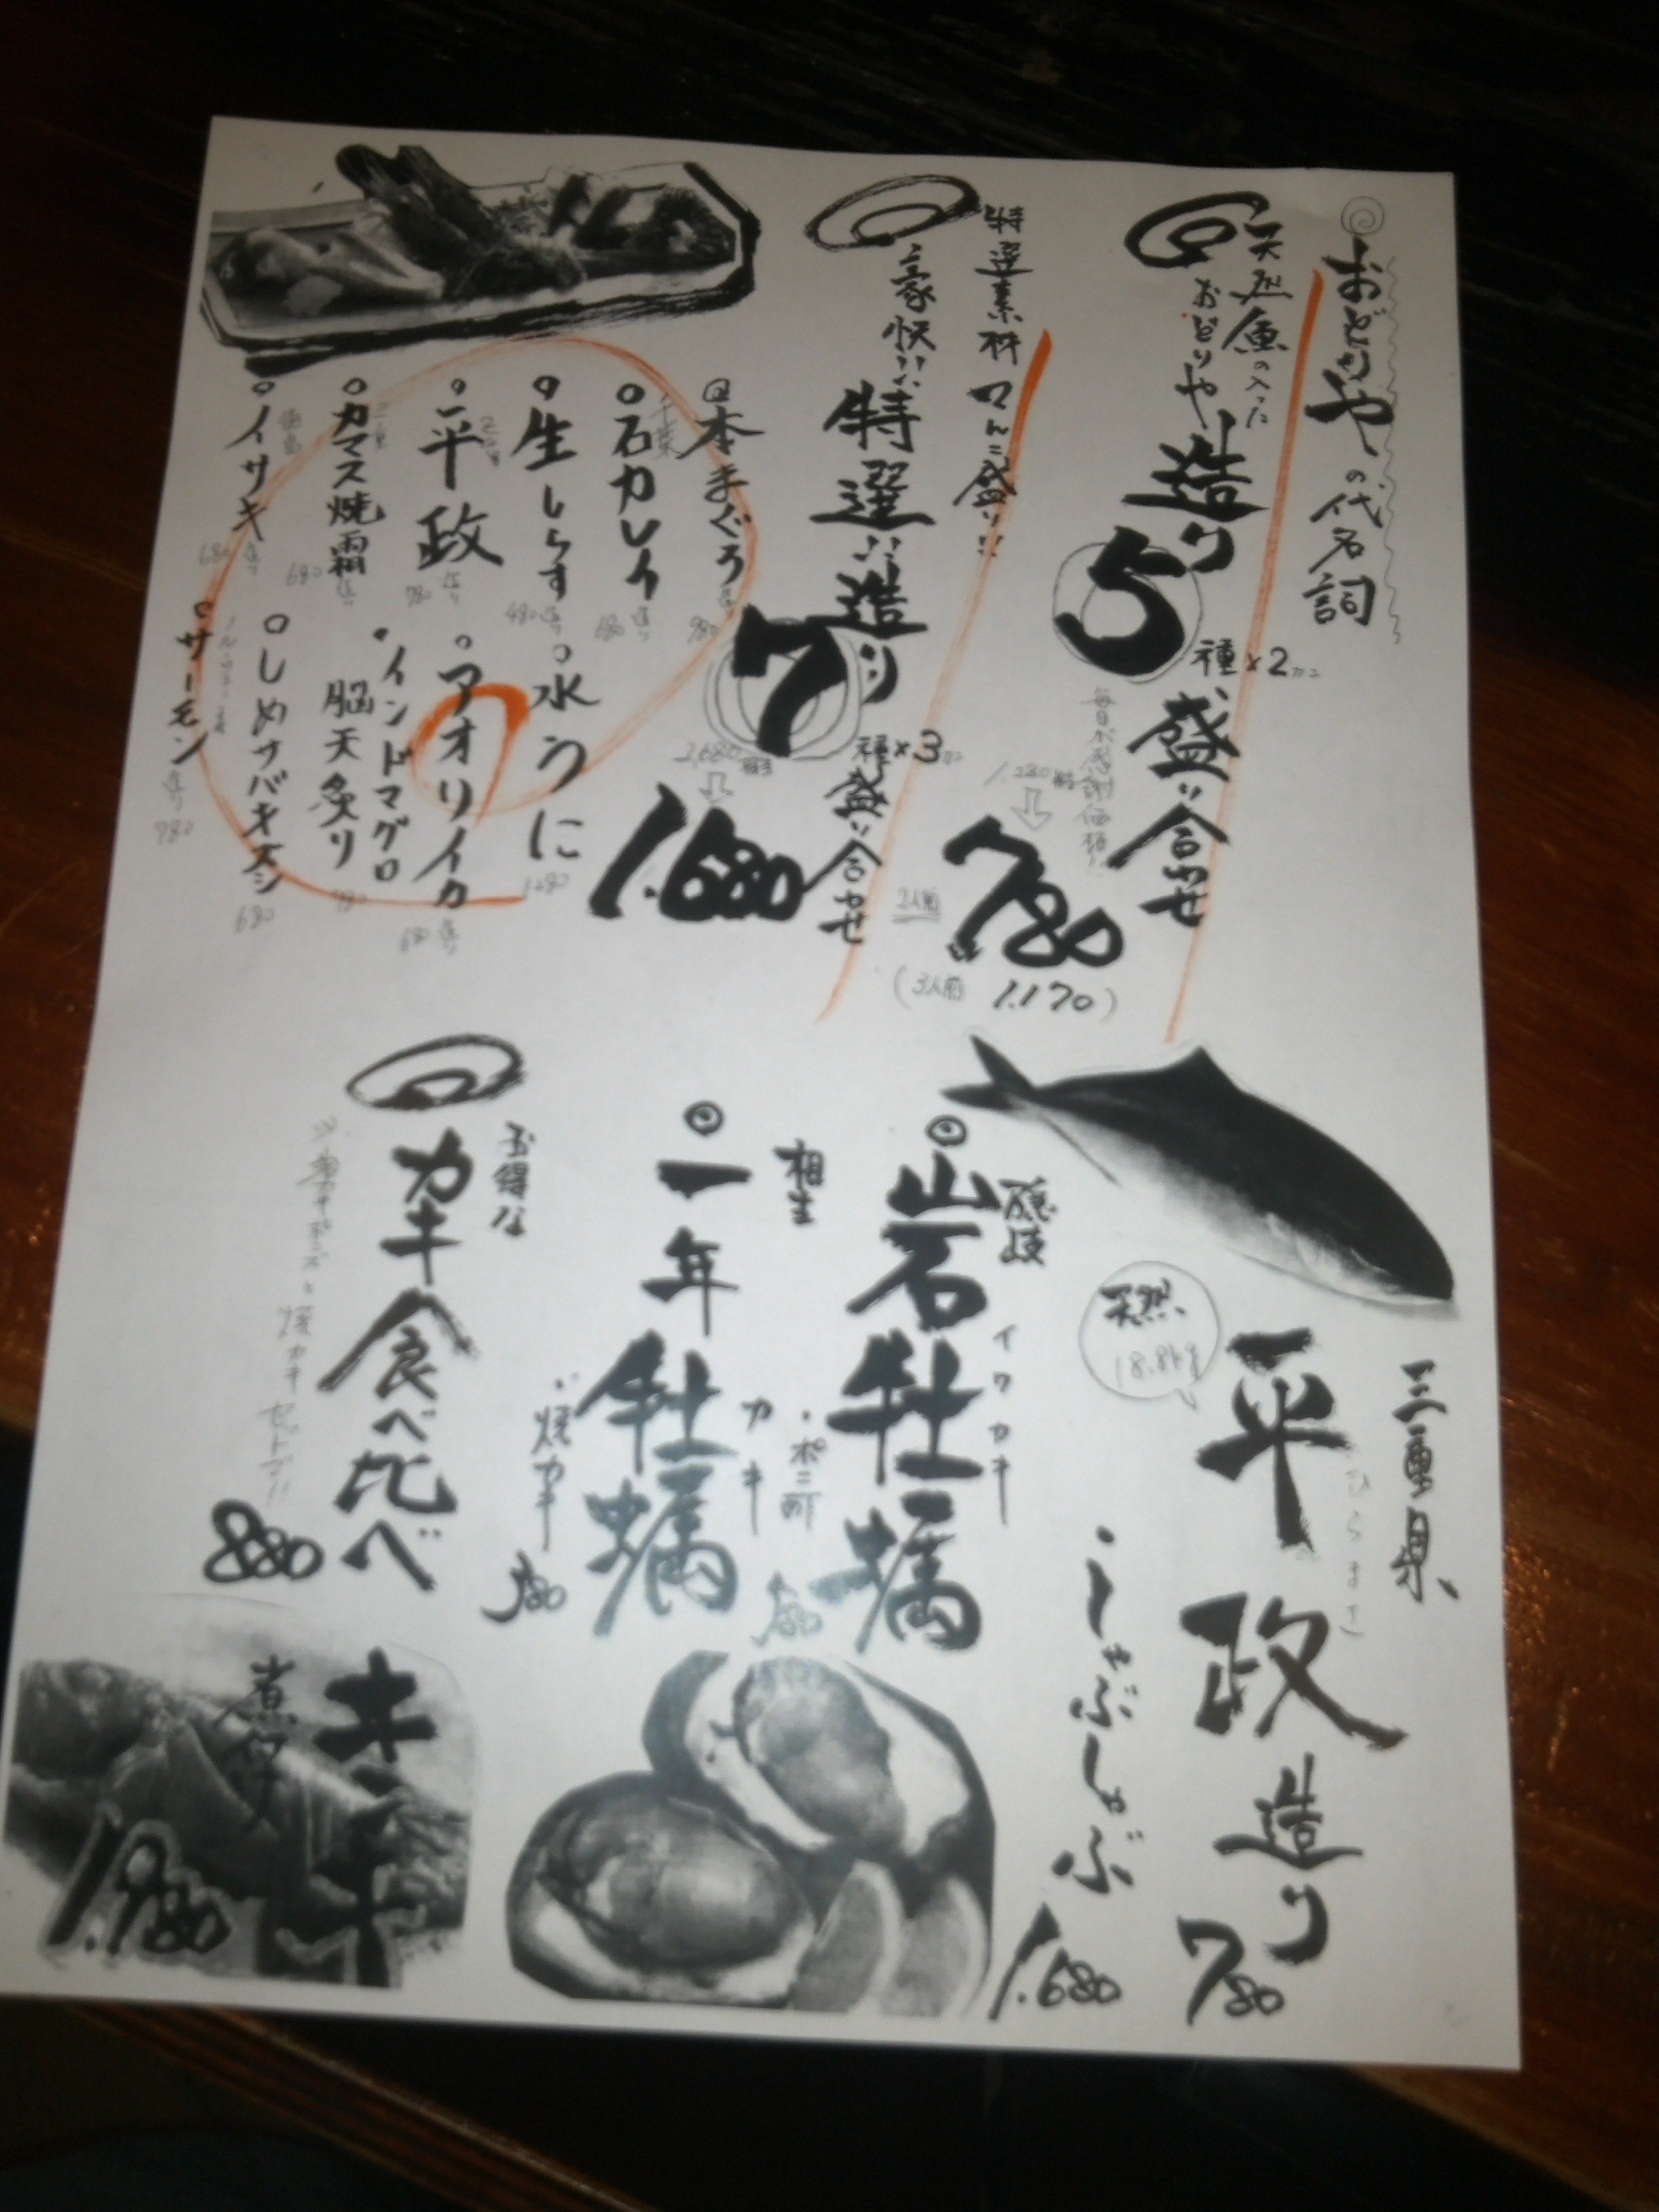 おどりやの代名詞
天然魚の入った
おどりや
造り5種×2カン盛り合せ
毎日が感謝価格!!
1,280
2人前
780
(3人前 1.170)
特選素材てんこ盛り!!
豪快!!
特選!!造り7種×3カン盛り合せ
2,680
1.680
本まぐろ 造り 980
千葉
石カレイ 造り 680
生しらす 造り 480
三重
平政 造り 780
三重
カマス焼霜 造り 680
徳島
イサキ 造り 680
水うに 1280
アオリイカ 造り 680
インドマグロ
脳天炙り 980
しめサバキズシ 680
ノルウェー産
サーモン 造り 780
三重県
平政造り 780
ひらまさ
天然
しゃぶしゃぶ 1.680
隠岐
岩牡蠣
イワカキ
・ポン酢
相生
一年牡蠣
カキ
・焼カキ
お得な
カキ食べ比べ
880
キンキ
煮付
1.980